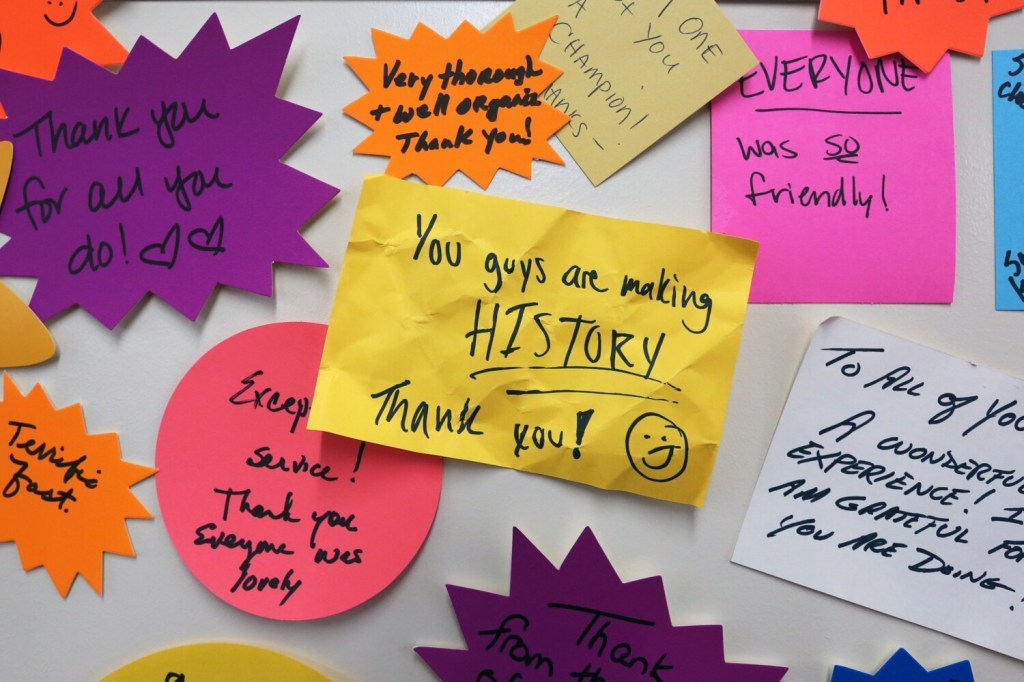 Thank you
for all you
do!
Very thorough
+ well organiz
Thank you!
I ONE
A + YOU
CHAMPION!
ANKS -
EVERYONE
was so
friendly!
You guys are making
HISTORY
Thank you!
Excep
service!
Thank you
Everyone was
lovely
Terrific
fast.
TO ALL OF YOU
A WONDERFUL
EXPERIENCE! I
AM GRATEFUL FO
YOU ARE DOING!
Thank
from th